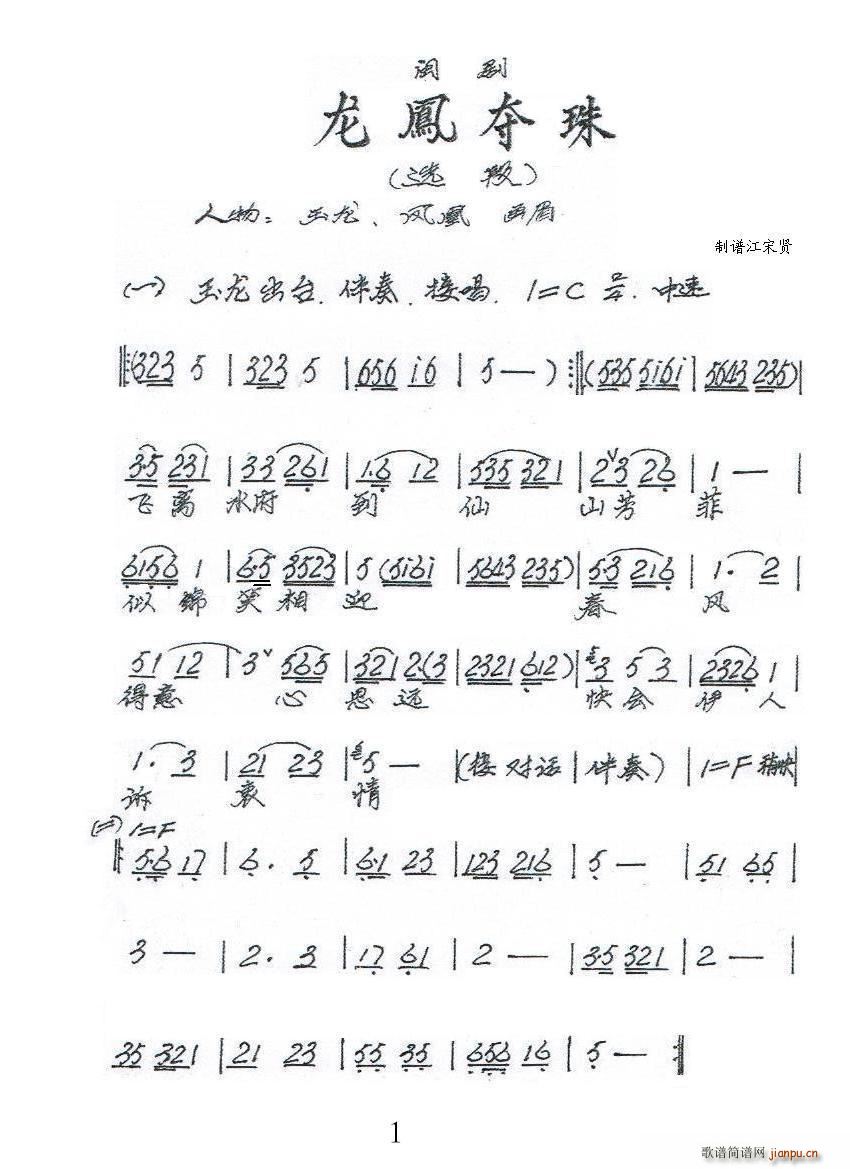 闽剧
龙鳳夺珠
(选段)
人物：玉龙、凤凰 画眉
制谱江宋贤
(一) 玉龙出台.伴奏.接唱. 1=C 2/4.中速
‖:(323 5 | 323 5 | 656 i6 | 5 — ) :‖: (535 5i6i | 5643 235) |
3·5 231 | 33 261 | 1·6 12 | 535 321 | 2ˇ3 26 | 1 — |
飞离水府到仙山芳菲
6156 1 | 6·5 3523 | 5 (5i6i | 5643 235) | 5·3 216 | 1· 2 |
似锦笑相迎春风
51 12 | 3ˇ 565 | 321 2·(3 | 2321 612) | 3 5 3 | 2326 1 |
得意心思远快会伊人
1· 3 | 21 23 | 5 — | (接对话 | 伴奏) | 1=F 稍快 |
诉衷情
(二) 1=F
‖: 5·6 17 | 6· 5 | 6·1 23 | 123 216 | 5 — | 51 65 |
3 — | 2· 3 | 17 61 | 2 — | 3·5 321 | 2 — |
35 321 | 21 23 | 55 35 | 656 16 | 5 — :‖
1
歌谱简谱网 jianpu.cn